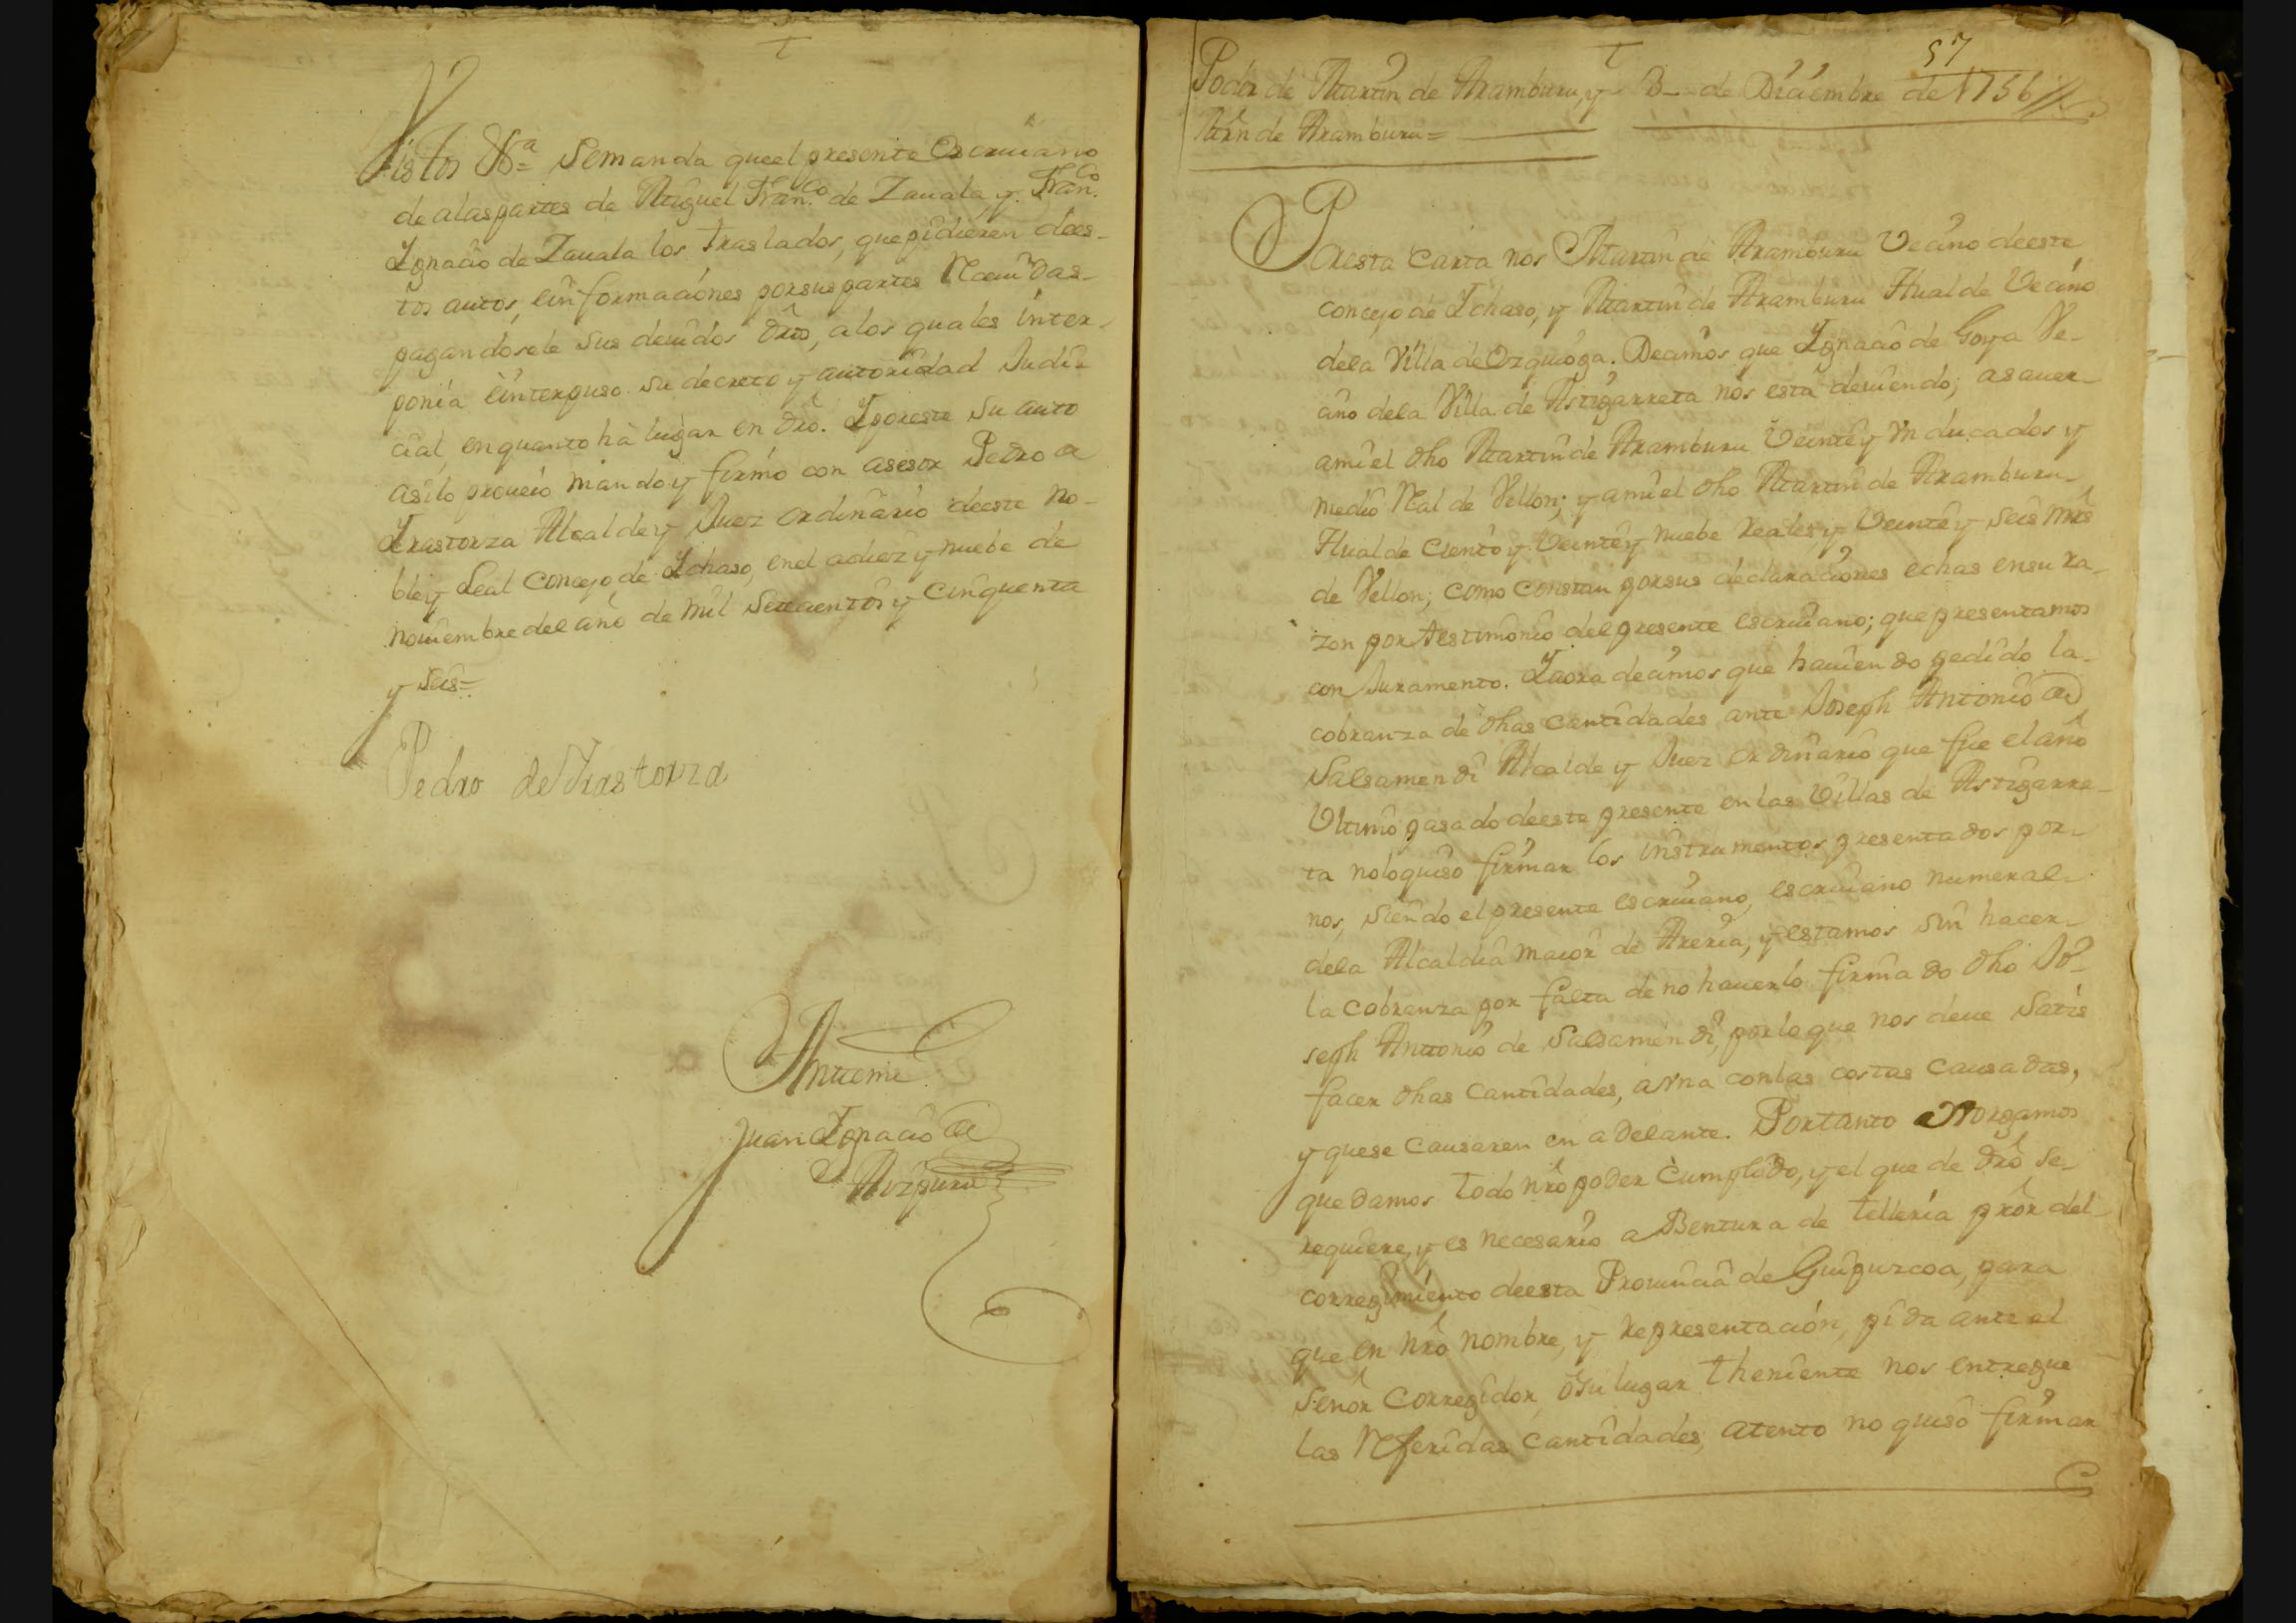 Vistos &ª Semanda queel presente Escriuano
de alaspartes de Miguel Franco. de Zauala, y Franco.
Ignacio de Zauala los traslados, quepidieren dees-
tos autos, einformaciones porsuspartes Receuidas-
pagandosele sus deuidos dros, alos quales inter-
ponia einterpuso su decreto y autoridad Judi-
cial, enquanto hà lugar en dro. Iporeste su auto
asilo proueio mando y firmo con asesor Pedro de
Irastorza Alcalde y Juez ordinario deeste No-
ble y Leal Concejo de Ichaso, enel adiez y nuebe de
nouiembre del año de mil Setecientos y Cinquenta
y Seis=
Pedro de Irastorza
Antemi
Juan Ignacio de
Aizpuru
57
Poder de Martin de Aramburu, y 3- de Diciembre de 1756//
Mrn de Aramburu=
Poresta Carta nos Martin de Aramburu Vecino deeste
concejo de Ichaso, y Martin de Aramburu Hualde Vecino
dela Villa de Ezquioga. Decimos que Ignacio de Goya Ve-
cino dela Villa de Astigarreta nos esta deuiendo, asauer-
amiel dho Martin de Aramburu Veinte y Vn ducados y
medio Real de Vellon; y amiel dho Martin de Aramburu-
Hualde Ciento y Veinte y nuebe reales, y Veinte y seis mrs
de Vellon; como constan porsus declaraciones echas ensu ra-
zon por testimonio delpresente escriuano; que presentamos
con Juramento. Iaora decimos que hauiendo pedido la-
cobranza de dhas cantidades ante Joseph Antonio de
Salsamendi Alcalde y Juez ordinario que fue el año
Vltimo pasado deeste presente en las Villas de Astigarre-
ta noloquiso firmar los instrumentos presentados por-
nos, siendo el presente escriuano, escriuano numeral-
dela Alcaldia maior de Areria, y estamos sin hacer-
la cobranza por falta de no hauerlo firmado dho Jo-
seph Antonio de Salsamendi, porloque nos deue Satis
facer dhas cantidades, avna conlas costas causadas,
y quese causaren en adelante. Portanto otorgamos
que damos todo nro poder Cumplido, y el que de dro se-
requiere, y es necesario a Bentura de telleria pror del-
corregimiento deesta Prouincia de Guipuzcoa, para
que en nro nombre, y representacion, pida ante el
Señor Corregidor, osu lugar theniente nos entregue
las Referidas cantidades, atento no quiso firmar